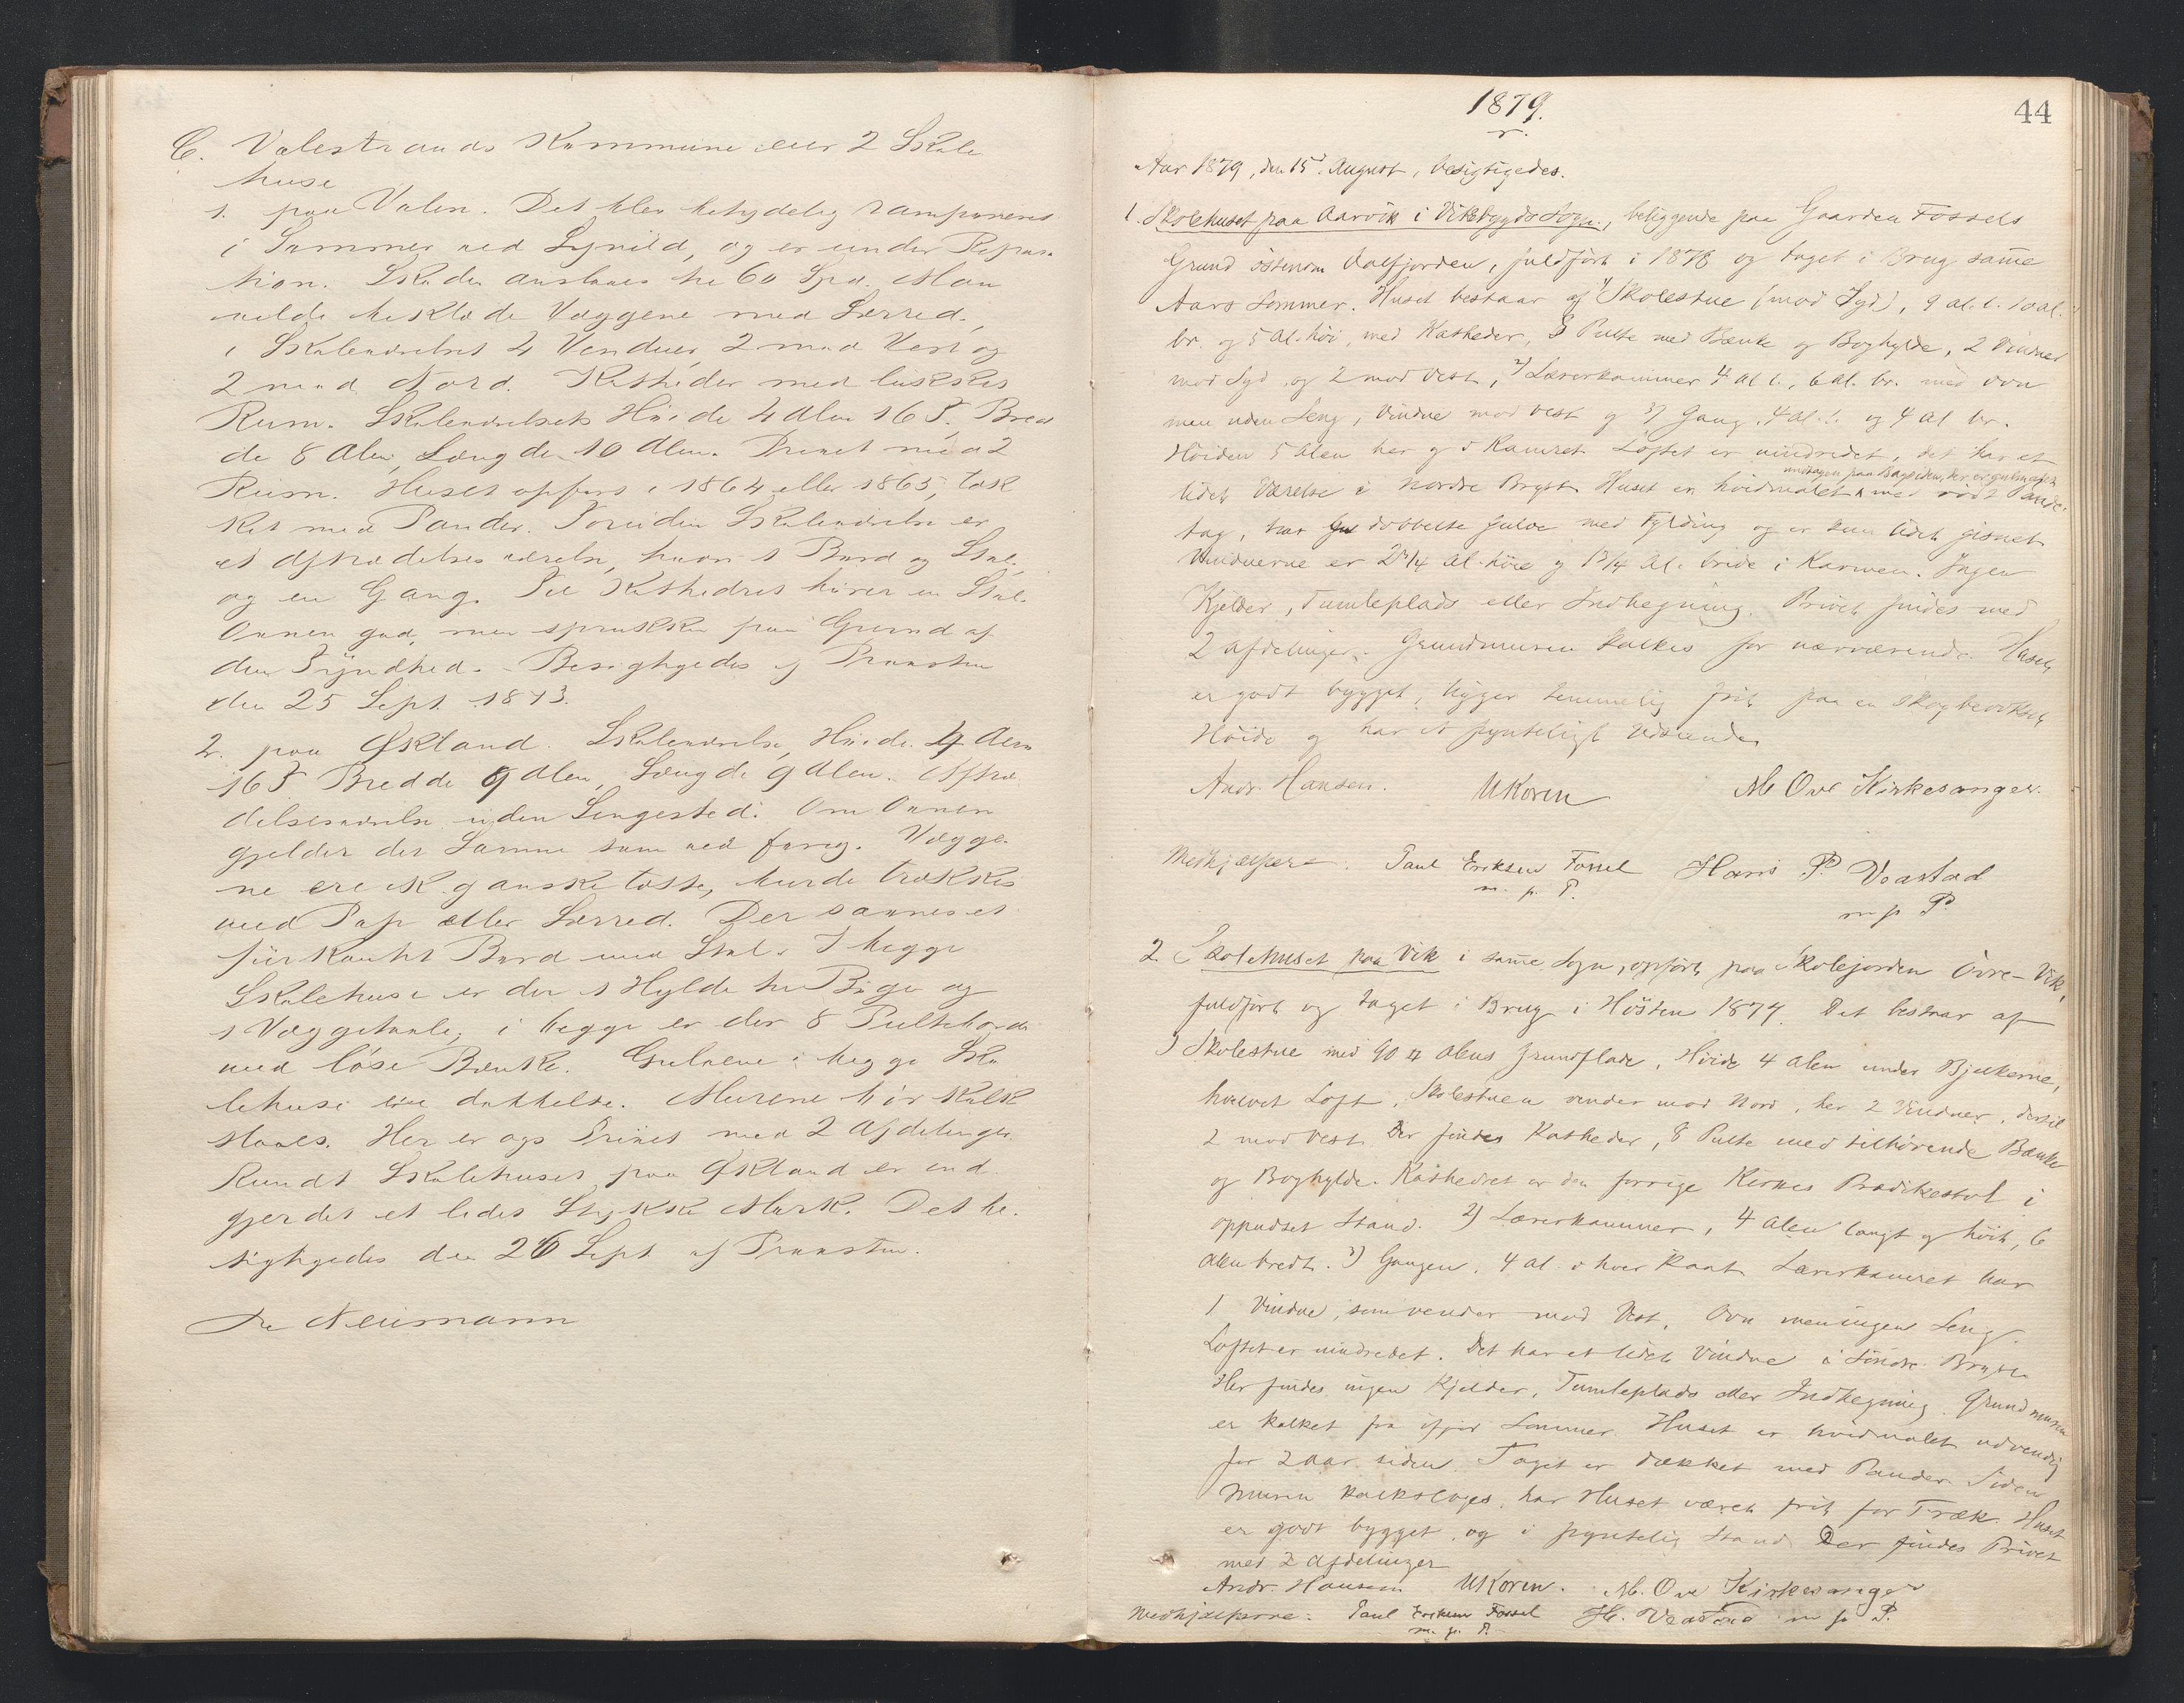 C. Valestrands Kommune eier 2 Skole
huse
1. paa Valen. Det blev betydelig ramponeret
i Sommer ved Lynild, og er under Repara-
tion. Skaden anslaaes til 60 Spd. Man
vilde beklæde Væggene med Lærred.
i Skoleværelset 4 Vinduer, 2 mod Vest og
2 mod Nord. Katheder med lukket
Rum. Skoleværelsets Høide 4 Alen 16 T., Bred
de 8 Alen, Længde 10 Alen. Privet med 2
Rum. Huset opført i 1864 eller 1865, tæk
ket med Pander. Foruden Skoleværelset er
et Aftrædelsesværelse, hvori 1 Bord og Stol,
og en Gang. Til Kathedret hører en Stol.
Ovnen god, men sprukken paa Grund af
dens Tyndhed. Besigtigedes af Provsten
den 25 Sept. 1873.
2. paa Økland. Skoleværelse, Høide 4 Alen
16 T. Bredde 9 Alen, Længde 9 Alen. Aftræ
delsesværelse uden Sengested. Om Ovnen
gjelder det Samme som ved forrig. Vægge-
ne ere ik. ganske tætte, burde trækkes
med Pap eller Lærred. Der savnes et
fiirkantet Bord med Stol. I begge
Skolehuse er der 1 Hylde til Bøger og
1 Væggetavle, i begge er der 8 Pulteborde
med löse Bænke. Gulvene i begge Sko
lehuse ere dobbelte. Murene bör kalk
slaaes. Her er ogs Privet med 2 Afdelinger.
Rundt Skolehuset paa Økland er ind
gjerdet et lidet Stykke Mark. Det be-
sigtigedes den 26 Sept af Provsten.
Neumann
44
1879.
Aar 1879, den 15d August, besigtigedes.
1. Skolehuset paa Aarvik i Vikebygds Sogn, beliggende paa Gaarden Fossels
Grund østenom Aalfjorden, fuldført i 1878 og taget i Brug samme
Aars Sommer. Huset bestaar af 1) Skolestue (mod Syd), 9 al. l. 10 al.
br. og 5 Al. höi, med Katheder, 8 Pulte med Bænke og Boghylde, 2 Vinduer
mod Syd og 2 mod Vest, 2) Lærerkammer 4 al l., 6 al. br. med Ovn
men uden Seng, Vindue mod Vest og 3) Gang, 4 al. l. og 4 al br.
Höiden 5 Alen her og i Kamret. Loftet er uindredet, det har et
lidet Værelse i nordre Bryst. Huset er hvidmalet undtagen paa Bagsiden, der er gulmalet, med rödt Pande-
tag, har dobbelte Gulve med Fylding og er kun lidet gisnet
Vinduerne er 2 3/4 al. höie og 1 3/4 al. brede i Karmen. Ingen
Kjelder, Tumleplads eller Indhegning. Privet findes med
2 Afdelinger. Grundmuren kalkes for nærværende. Huset
er godt bygget, ligger temmelig frit paa en skogbevokset
Höide og har et pynteligt Udseende
Andr. Hansen. UKoren M. Ove Kirkesanger.
Medhjælpere: Paul Eriksen Fossel Hans P. Veastad
m. p. P. m p P.
2. Skolehuset paa Vik i samme Sogn, opført paa Skolejorden Övre-Vik,
fuldført og taget i Brug i Hösten 1874. Det bestaar af
1) Skolestue med 90 □ Alens Grundflade, Höide 4 Alen under Bjelkerne,
hvelvet Loft, Skolestuen vender mod Nord, her 2 Vinduer, dertil
2 mod Vest. Der findes Katheder, 8 Pulte med tilhörende Bænke
og Boghylde. Kathedret er den forrige Kirkes Prædikestol i
oppudset Stand. 2) Lærerkammer, 4 Alen langt og höit, 6
Alen bredt. 3) Gangen, 4 al. i hver Kant. Lærerkamret har
1 Vindue, som vender mod Vest, Ovn men ingen Seng.
Loftet er uindredet. Det har et lidet Vindue i söndre Bryst.
Her findes ingen Kjelder, Tumleplads eller Indhegning. Grundmuren
er kalket fra ifjor Sommer. Huset er hvidmalet udvendig
for 2 Aar siden. Taget er tækket med Pander. Siden
Muren kalksloges, har Huset været frit for Træk. Huset
er godt bygget og i pyntelig Stand. Der findes Privet
med 2 Afdelinger
Andr. Hansen UKoren. M. Ove Kirkesanger
Medhjælpere: Paul Eriksen Fossel H. Veastad m p P.
m. p. P.